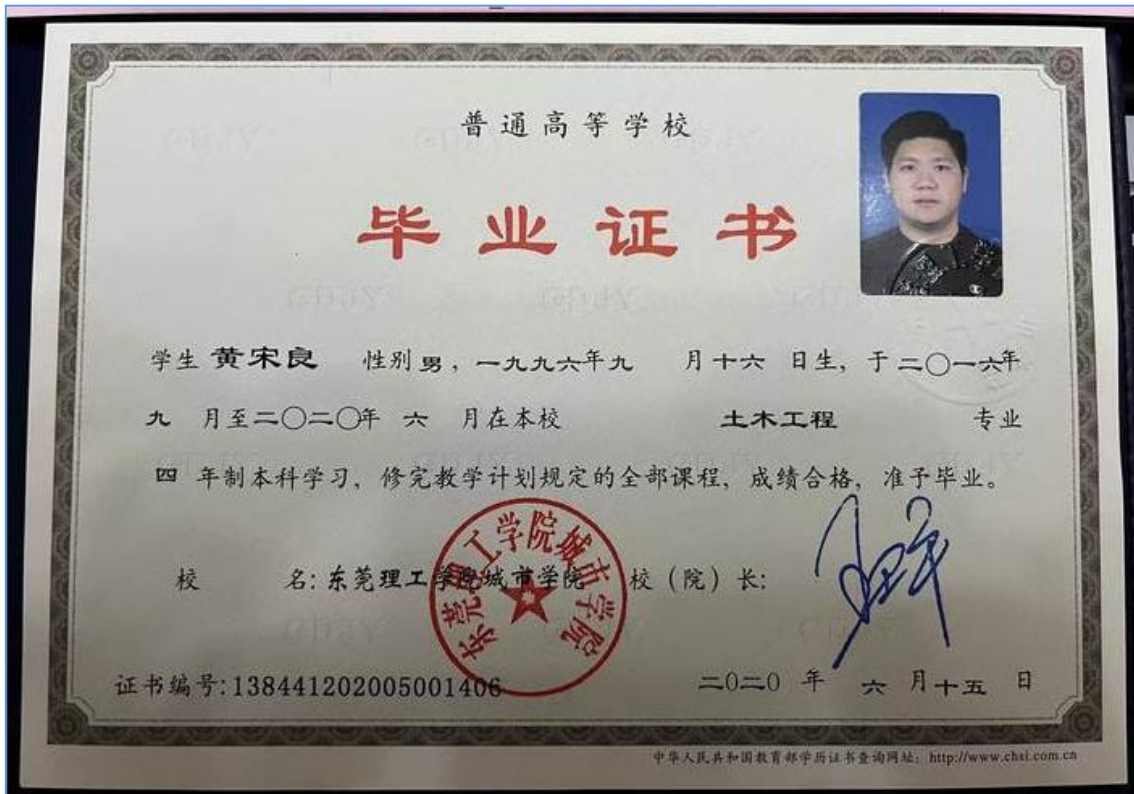 普通高等学校
毕业证书
学生 黄宋良 性别 男，一九九六年九 月十六 日生，于二〇一六年
九 月至二〇二〇年 六 月在本校 土木工程 专业
四 年制本科学习，修完教学计划规定的全部课程，成绩合格，准予毕业。
校 名：东莞理工学院城市学院 校（院）长：
东莞理工学院城市学院
证书编号：138441202005001406 二〇二〇 年 六 月十五 日
中华人民共和国教育部学历证书查询网址：http://www.chsi.com.cn